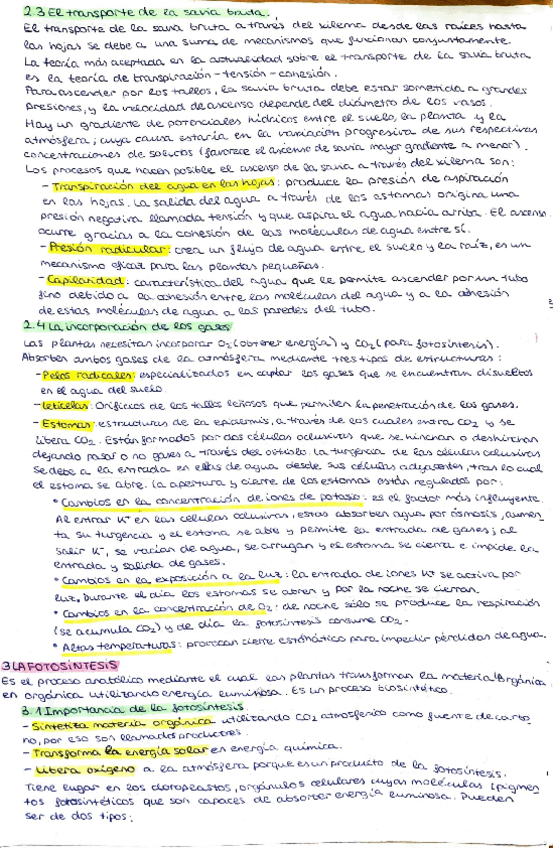 2.3 El transporte de la savia bruta.
El transporte de la savia bruta a través del xilema desde las raíces hasta
las hojas se debe a una suma de mecanismos que funcionan conjuntamente.
La teoría más aceptada en la actualidad sobre el transporte de la savia bruta
es la teoría de transpiración-tensión-cohesión.
Para ascender por los tallos, la savia bruta debe estar sometida a grandes
presiones, y la velocidad de ascenso depende del diámetro de los vasos.
Hay un gradiente de potenciales hídricos entre el suelo, la planta y la
atmósfera, cuya causa estaría en la variación progresiva de sus respectivas
concentraciones de solutos (favorece el ascenso de savia mayor gradiente a menor).
Los procesos que hacen posible el ascenso de la savia a través del xilema son:
- Transpiración del agua en las hojas: produce la presión de aspiración
en las hojas. La salida del agua a través de los estomas origina una
presión negativa llamada tensión y que aspira el agua hacia arriba. El ascenso
ocurre gracias a la cohesión de las moléculas de agua entre sí.
- Presión radicular: crea un flujo de agua entre el suelo y la raíz, es un
mecanismo eficaz para las plantas pequeñas.
- Capilaridad: característica del agua que le permite ascender por un tubo
fino debido a la cohesión entre las moléculas del agua y a la adhesión
de estas moléculas de agua a las paredes del tubo.
2.4 La incorporación de los gases
Las plantas necesitan incorporar O2 (obtener energía) y CO2 (para fotosíntesis).
Absorben ambos gases de la atmósfera mediante tres tipos de estructuras:
- Pelos radicales: especializados en captar los gases que se encuentran disueltos
en el agua del suelo
- Leticelas: Orificios de los tallos leñosos que permiten la penetración de los gases.
- Estomas: estructuras de la epidermis, a través de los cuales entra CO2 y se
libera CO2. Están formados por dos células oclusivas que se hinchan o deshinchan
dejando pasar o no gases a través del ostiolo. La turgencia de las células oclusivas
se debe a la entrada en ellas de agua desde sus células adyacentes, tras lo cual
el estoma se abre. La apertura y cierre de los estomas están regulados por:
* Cambios en la concentración de iones de potasio: es el factor más influyente.
Al entrar K+ en las células oclusivas, estas absorben agua por ósmosis, aumen-
ta su turgencia y el estoma se abre y permite la entrada de gases; al
salir K+, se vacían de agua, se arrugan y el estoma se cierra e impide la
entrada y salida de gases.
* Cambios en la exposición a la luz: la entrada de iones K+ se activa por
luz. Durante el día los estomas se abren y por la noche se cierran.
* Cambios en la concentración de O2: de noche sólo se produce la respiración
(se acumula CO2) y de día la fotosíntesis consume CO2.
* Altas temperaturas: provocan cierre estomático para impedir pérdidas de agua.
3 LA FOTOSÍNTESIS
Es el proceso anabólico mediante el cual las plantas transforman la materia inorgánica
en orgánica utilizando energía luminosa. Es un proceso biosintético.
3.1 Importancia de la fotosíntesis
- Sintetiza materia orgánica utilizando CO2 atmosférico como fuente de carbo
no, por eso son llamados productores.
- Transforma la energía solar en energía química.
- Libera oxígeno a la atmósfera porque es un producto de la fotosíntesis.
Tiene lugar en los cloroplastos, orgánulos celulares cuyas moléculas (pigmen-
tos fotosintéticos que son capaces de absorber energía luminosa. Pueden
ser de dos tipos: